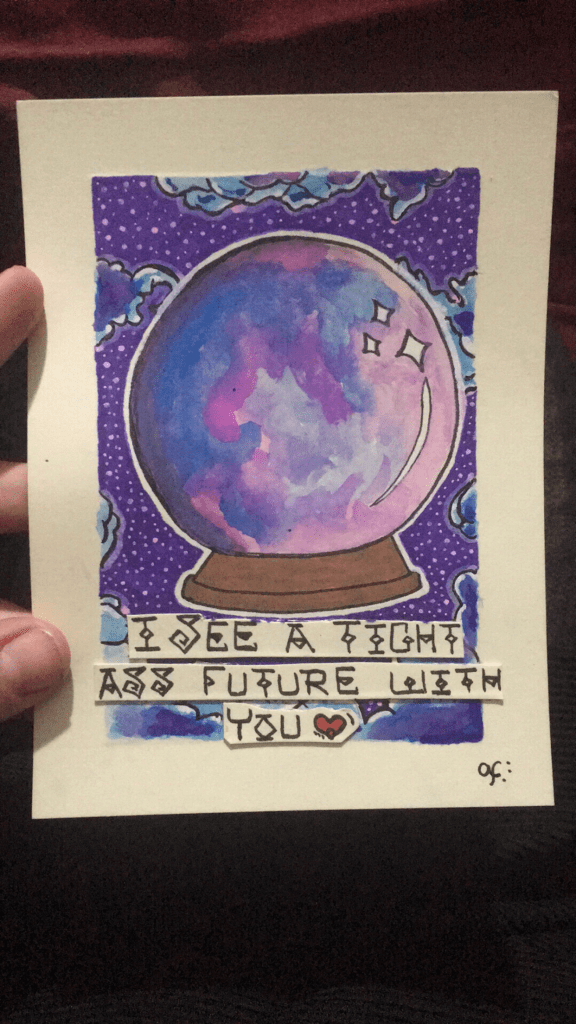 I SEE A TIGHT
ASS FUTURE WITH
YOU